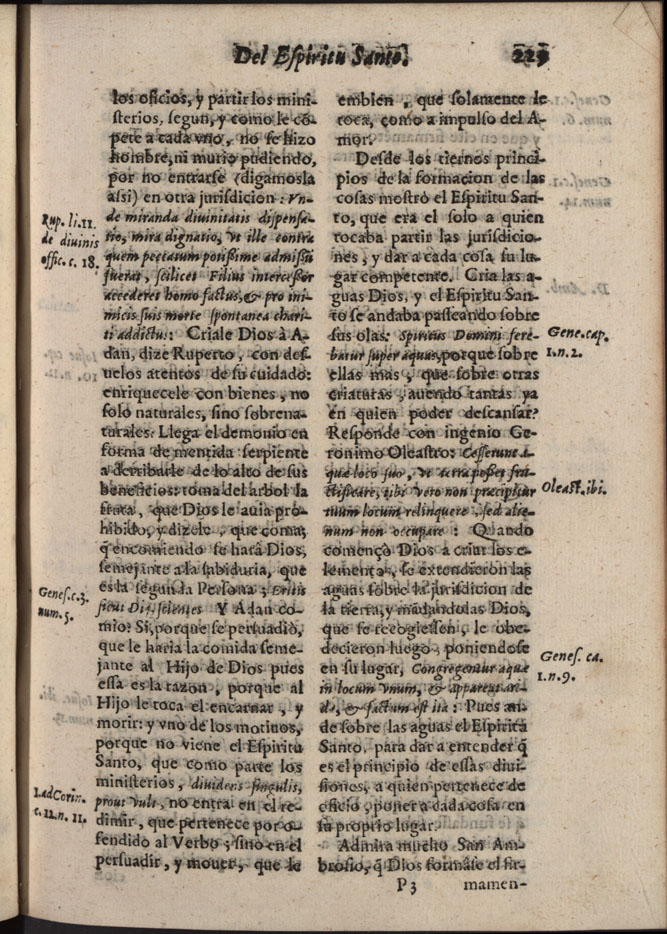 Del Espiritu Santo. 229
los oficios, y partir los mini-
sterios, segun, y como le cõ-
pete a cada vno, no se hizo
hombre, ni murio pudiendo,
por no entrarse (digamosla
assi) en otra jurisdicion: Vn-
de miranda divinitatis dispensa-
tio, mira dignatio, vt ille contra
quem peccatum potissime admissũ
fuerat, scilicet Filius intercessor
accederet homo factus, & pro ini-
micis suis morte spontanea chari-
ti addictus: Criale Dios à A-
dan, dize Ruperto, con des-
uelos atentos de su cuidado:
enriquecele con bienes, no
solo naturales, sino sobrena-
turales: Llega el demonio en
forma de mentida serpiente
a derribarle de lo alto de sus
beneficios: toma del arbol la
fruta, que Dios le auia pro-
hibido, y dizele, que coma;
q̃ en comiendo se harà Dios,
semejante a la sabiduria, que
es la segunda Persona; Eritis
sicut Dij, scientes Y Adan co-
mio? Si, porque se persuadiò,
que le haria la comida seme-
jante al Hijo de Dios pues
essa es la razon, porque al
Hijo le toca el encarnar, y
morir: y vno de los motiuos,
porque no viene el Espiritu
Santo, que como parte los
ministerios, dividens singulis,
prout vult, no entra en el re-
dimir, que pertenece por o-
fendido al Verbo; sino en el
persuadir, y mouer, que le
Rup. li. 11.
de divinis
offic. c. 18.
Genes. c. 3.
num. 5.
1. ad Corin.
c. 12. n. 11.
embien, que solamente le
toca, como a impulso del A-
mor.
Desde los tiernos princi-
pios de la formacion de las
cosas mostrò el Espiritu San-
to, que era el solo a quien
tocaba partir las jurisdicio-
nes, y dar a cada cosa su lu-
gar competente. Cria las a-
guas Dios, y el Espiritu San-
to se andaba passeando sobre
sus olas: Spiritus Domini fere-
batur super aquas, porque sobre
ellas mas, que sobre otras
criaturas, auendo tantas ya
en quien poder descansar?
Responde con ingenio Ge-
ronimo Oleastro: Cesserunt a-
quæ loco suo, vt terra posset fru-
ctificare, tibi vero non præcipitur
tuum locum relinquere, sed alie-
num non occupare: Quando
començò Dios a criar los e-
lementos, se extendieron las
aguas sobre la jurisdicion de
la tierra, y mãdandolas Dios,
que se recogiessen, le obe-
decieron luego, poniendose
en su lugar, Congregentur aquæ
in locum vnum, & appareat ari-
da, & factum est ita: Pues an-
de sobre las aguas el Espiritu
Santo, para dar a entender q̃
es el principio de essas diui-
siones, a quien pertenece de
oficio, poner a cada cosa en
su proprio lugar.
Admira mucho San Am-
brosio, q̃ Dios formàse el fir-
Gene. cap.
1. n. 2.
Oleast. ibi.
Genes. ca.
1. n. 9.
P3 mamen-